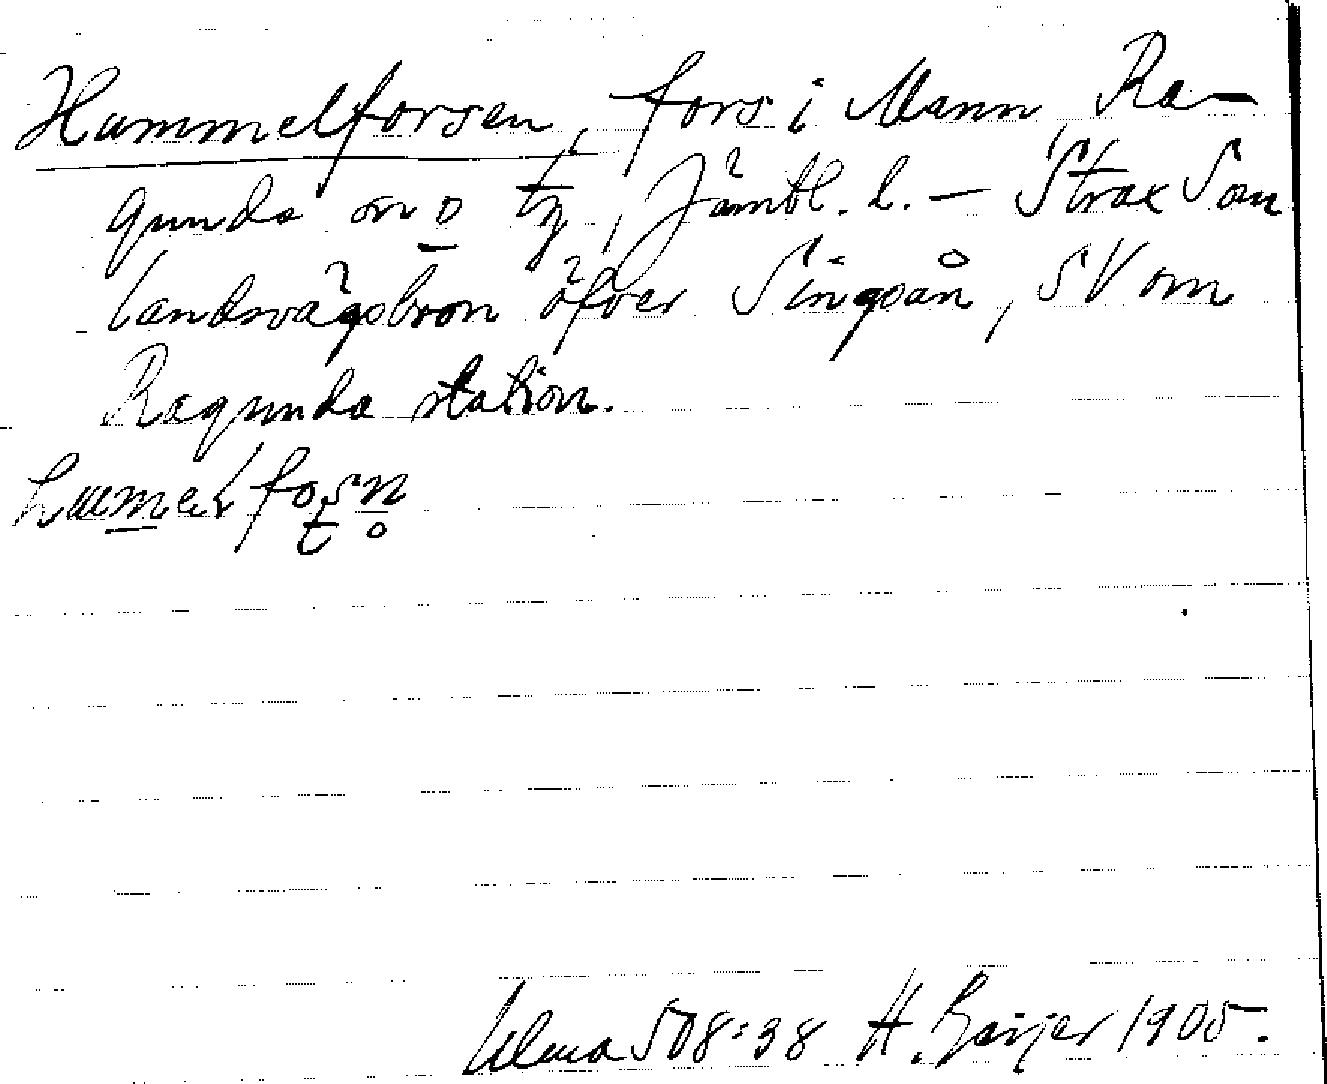 Hammelforsen, fors i Mann, Ra-
gunda sn o tg, Jämtl. l. – Strax S om
landsvägsbron öfver Singsån, SV om
Ragunda station.
Ulma 508:38 H. Geijer 1905.